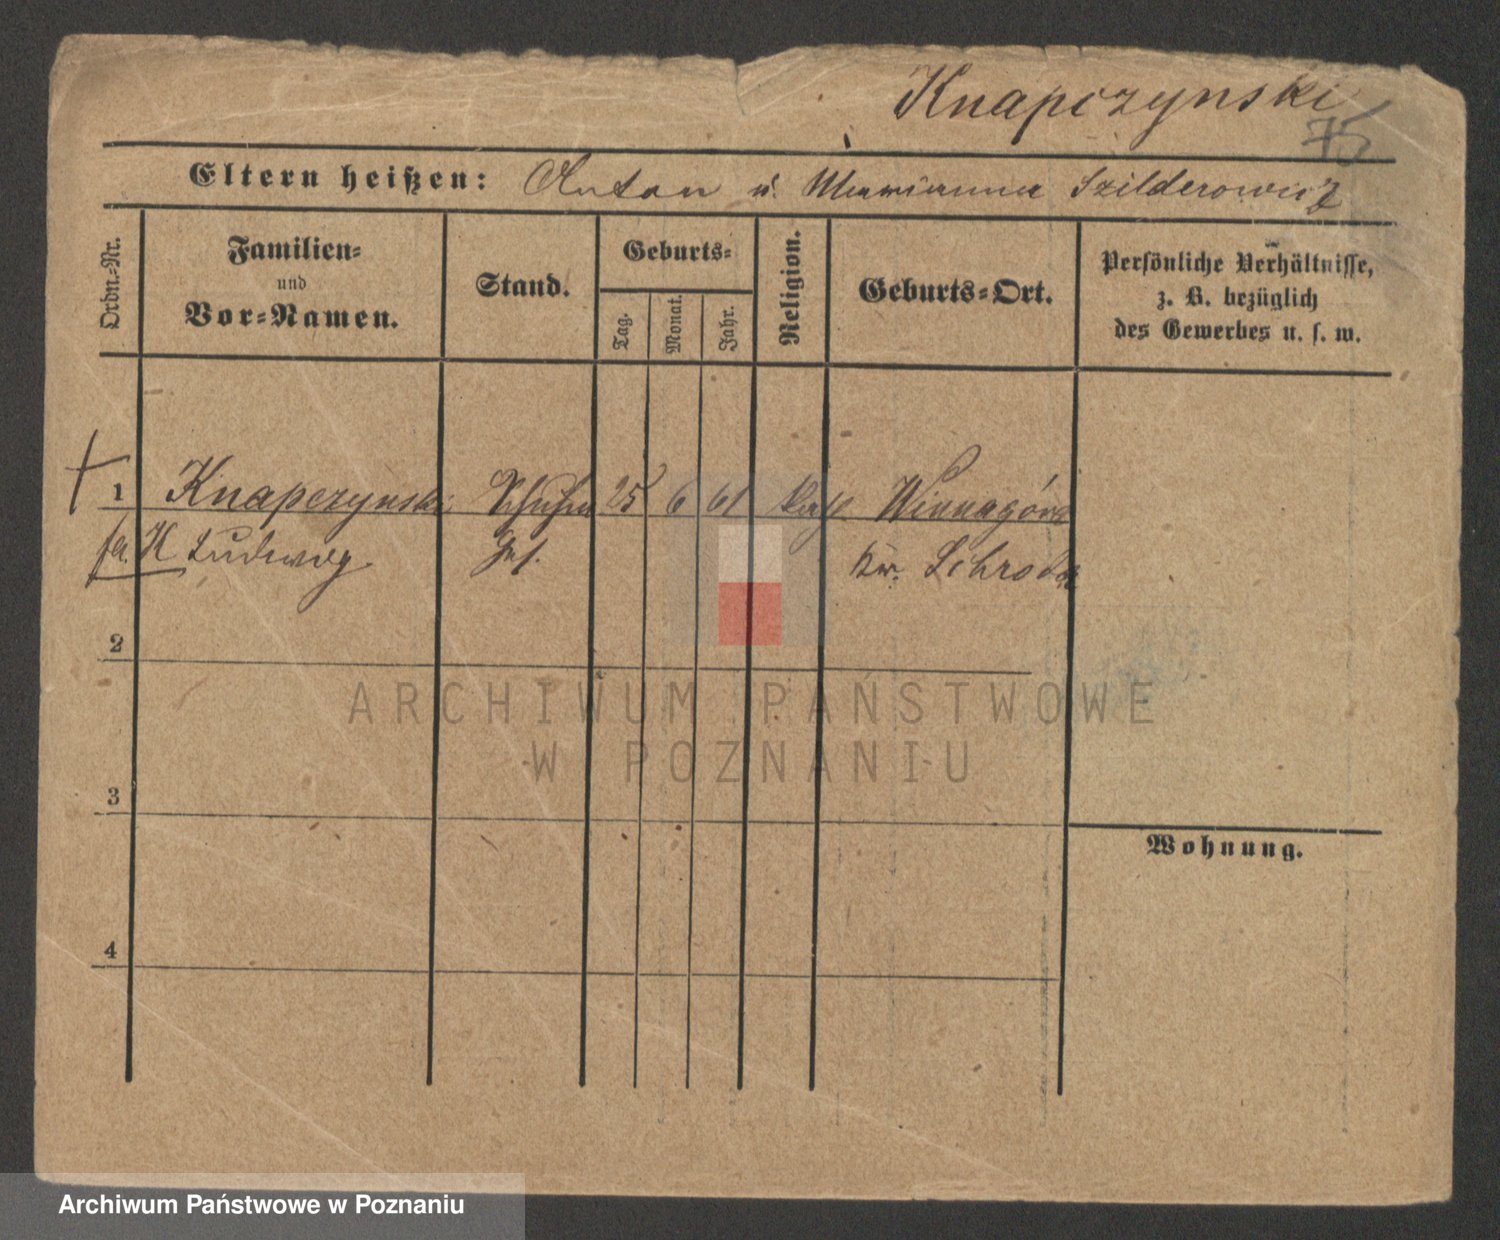 Knapczynski
75
Eltern heißen: Anton u. Marianna Szilderowicz
Ordn.-Nr.
Familien-
und
Vor-Namen.
Stand.
Geburts-
Tag.
Monat.
Jahr.
Religion.
Geburts-Ort.
Persönliche Verhältnisse,
z. B. bezüglich
des Gewerbes u. s. w.
1 Knapczynski Schuhm 25 6 61 kath Winnagóra
Ludwig Ges. Kr. Schroda
2
3
Wohnung.
4
ARCHIWUM PAŃSTWOWE
W POZNANIU
Archiwum Państwowe w Poznaniu